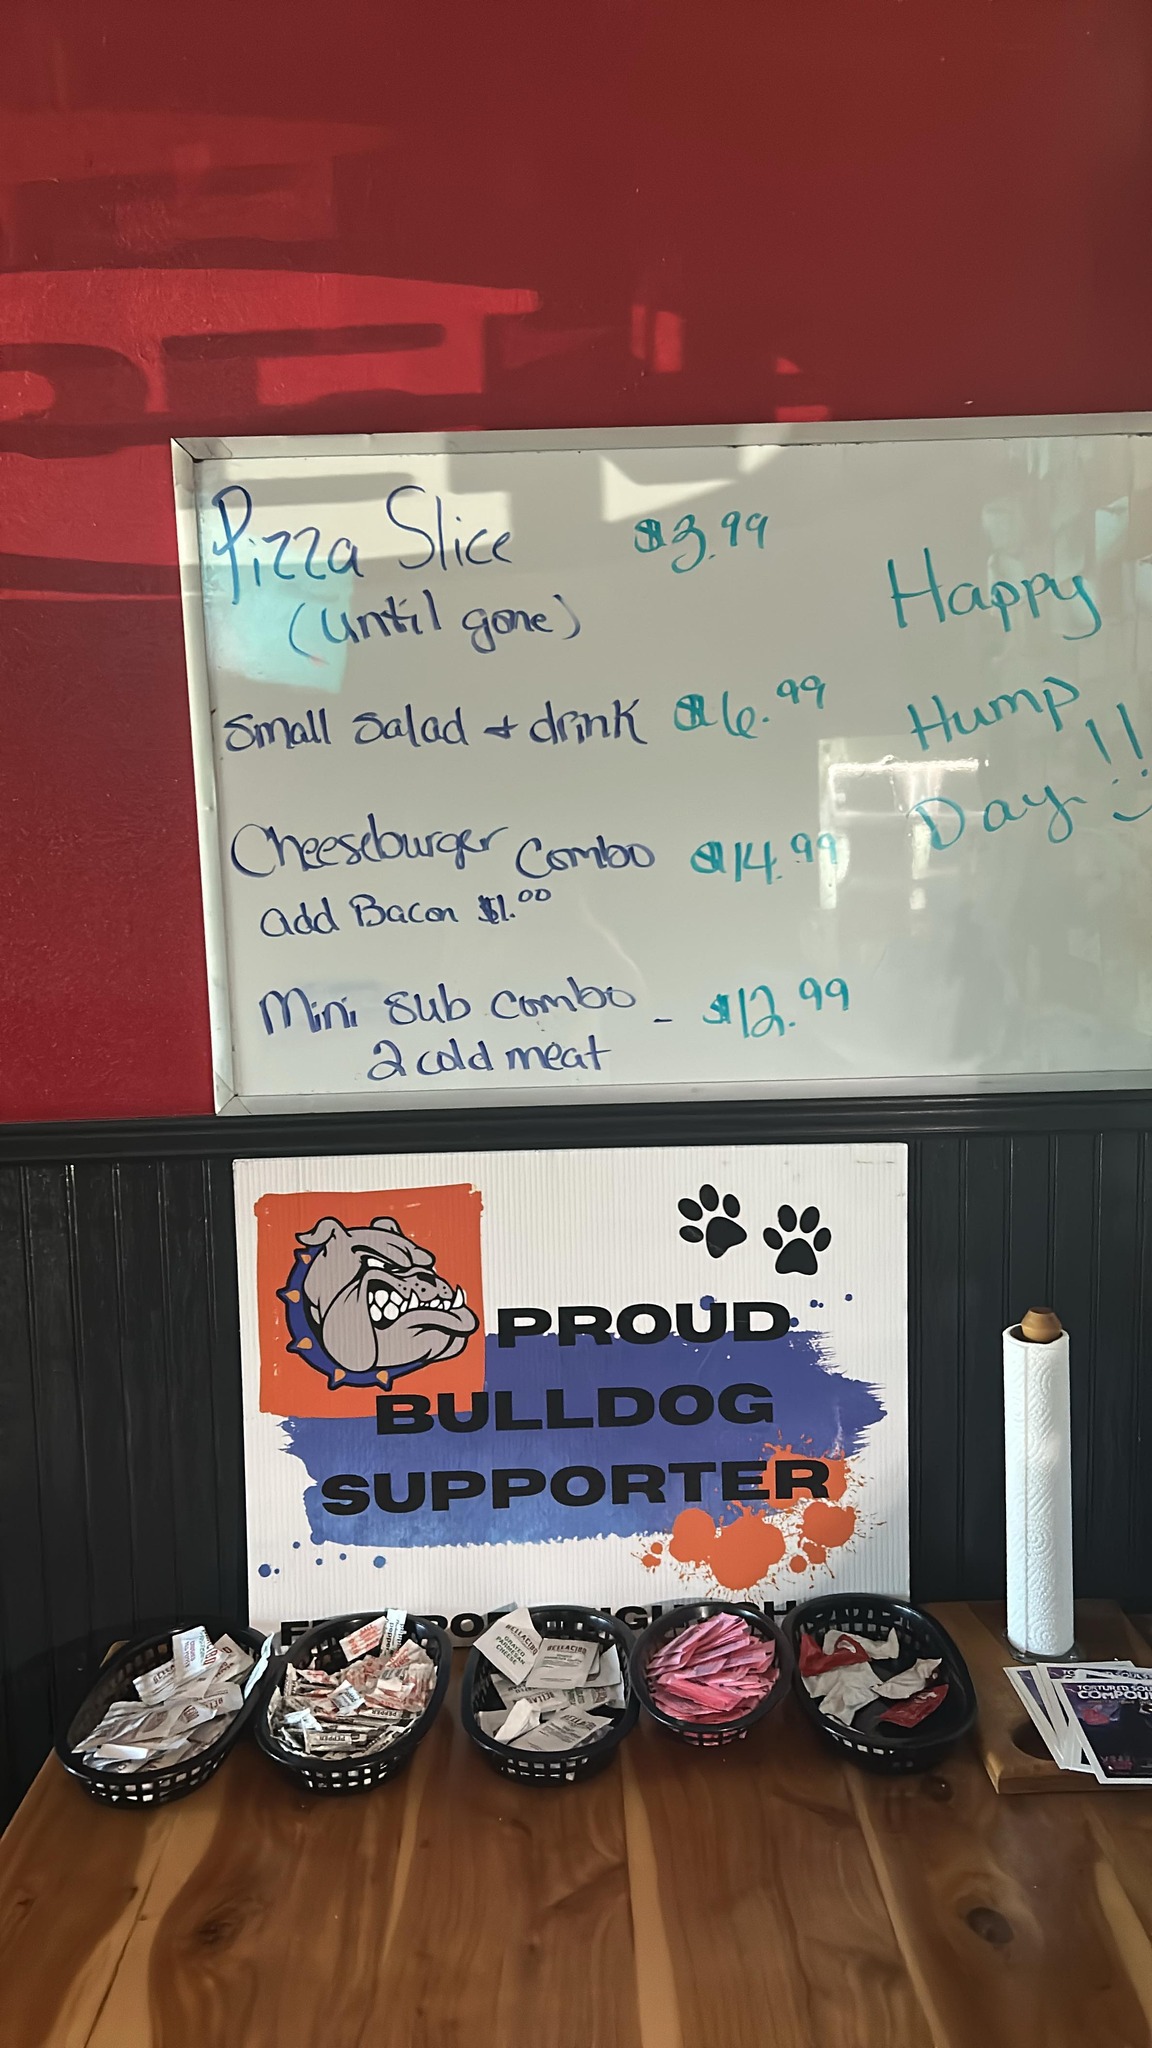 Pizza Slice $3.99
(until gone)
Small Salad + drink $6.99
Cheeseburger Combo $14.99
add Bacon $1.00
Mini Sub Combo - $12.99
2 cold meat
Happy
Hump
Day!!
PROUD
BULLDOG
SUPPORTER
BELLACINO
GRATED
PARMESAN
CHEESE
BELLACINO
PEPPER
TORTURED SOULS
COMPOU